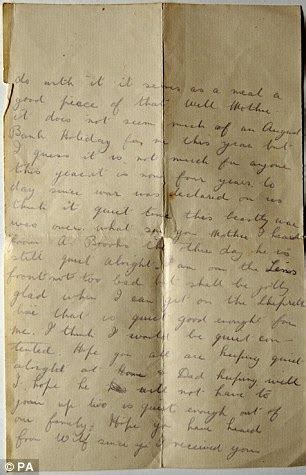 do with it it serves as a meal a
good peace of that will Mother
it does not seem much of an August
Bank Holiday for me this year but
I guess it is not much for anyone
this year it is now four years to
day since war was declared on us
think it quiet time this beastly war
was over what say you Mother I heard
from A Boorks the other day he is
still quiet alright. I am on the Lens
front not too bad but shall be jolly
glad when I can get on the
line that is quiet good enought for
me. I think I would be quiet con-
tented Hope you all are keeping quiet
alright at Home & Dad keeping well
I hope he will not have to
join up two is quiet enough out of
our family. Hope you have heard
from Wilf since you received yours
© PA